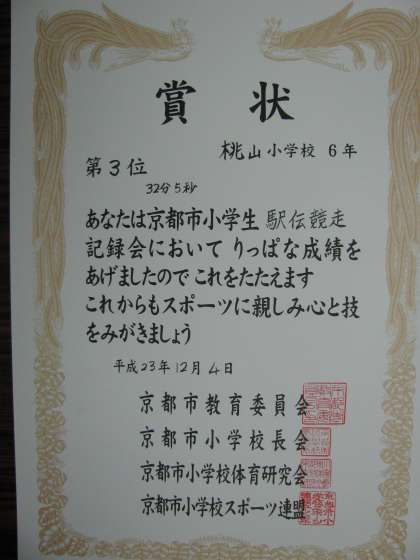 賞状
桃山小学校 6年
第3位
32分5秒
あなたは京都市小学生 駅伝競走
記録会において りっぱな成績を
あげましたので これをたたえます
これからもスポーツに親しみ心と技
をみがきましょう
平成23年12月4日
京都市教育委員会
京都市小学校長会
京都市小学校体育研究会
京都市小学校スポーツ連盟